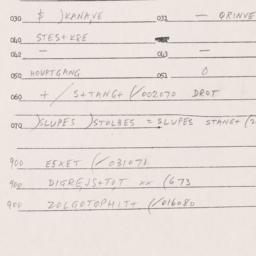 030 $ )KANAVE 032 — QRINVE
040 STES+K&E
040 — 043 —
050 HOUPTGANG 053 0
060 + / S+TANG+ (/002070 DROT
070 )SLUPES )STOLBES = SLUPES STANG+ (2
900 ESKET (/031071
900 DIGREJS+TOT xx (673
900 ZOLGOTOPHIT+ (/016080